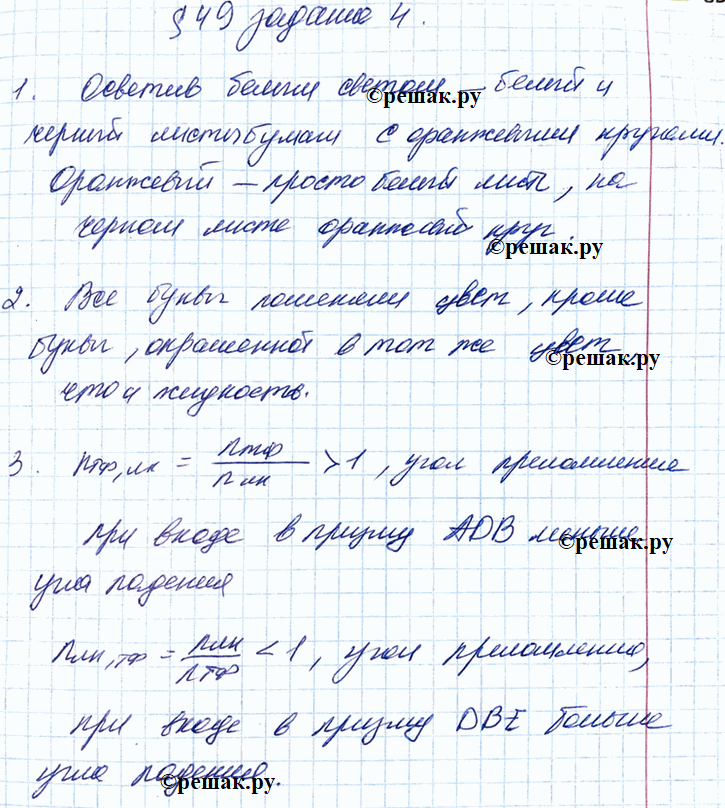 § 49 задание 4.
1. Осветив белым светом – белый и
©решак.ру
черный листы бумаги с оранжевыми кругами.
Оранжевый – просто белый лист, на
черном листе оранжевый круг.
©решак.ру
2. Все буквы поменяли цвет, кроме
буквы, окрашенной в тот же цвет
©решак.ру
что и жидкость.
3. nтф,лк = nтф/nлк > 1, угол преломления
при входе в призму ADB меньше
©решак.ру
угла падения
nлк,тф = nлк/nтф < 1, угол преломления,
при входе в призму DBE больше
угла падения.
©решак.ру